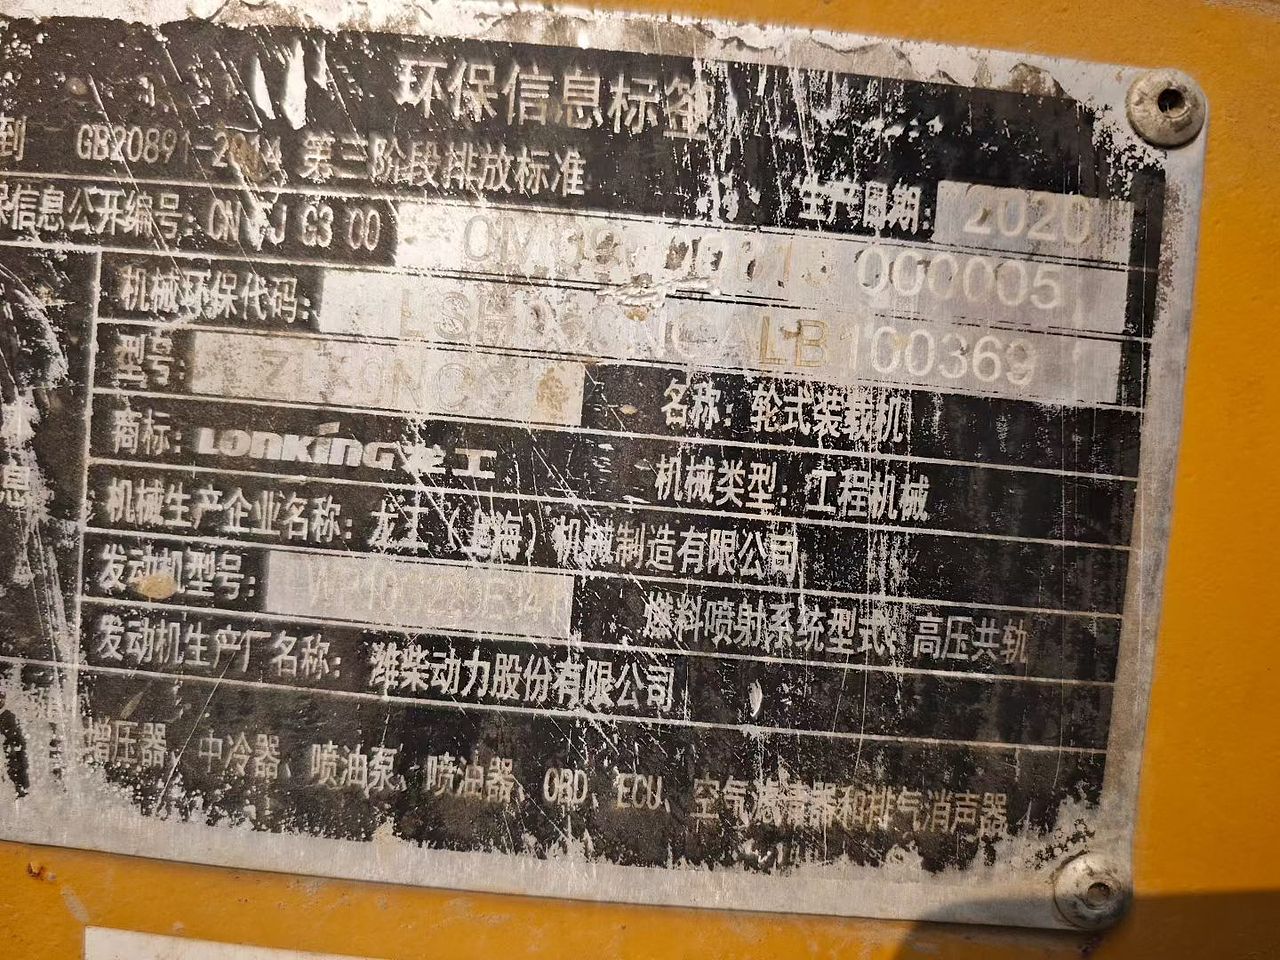 环保信息标签
到 GB20891-2014 第三阶段排放标准
保信息公开编号: CN J G3 00 000005 生产日期: 2020
机械环保代码: LB100369
型号: 名称: 轮式装载机
商标: LONKING 龙工 机械类型: 工程机械
息
机械生产企业名称: 龙工(上海)机械制造有限公司
发动机型号: 燃料喷射系统型式: 高压共轨
发动机生产厂名称: 潍柴动力股份有限公司
增压器、中冷器、喷油泵、喷油器、OBD、ECU、空气滤清器和排气消声器